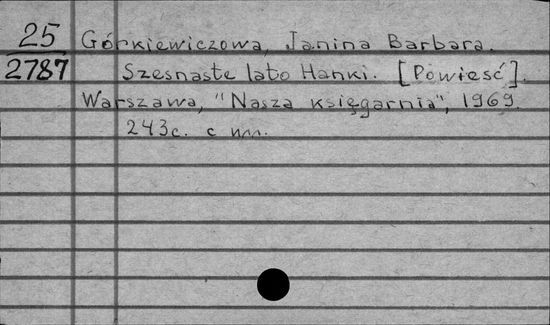 25
2787
Górkiewiczowa, Janina Barbara.
Szesnaste lato Hanki. [Powieść].
Warszawa, "Nasza księgarnia", 1969.
243с. с илл.